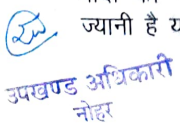 ज्यानी है य
उपखण्ड अधिकारी
नोहर